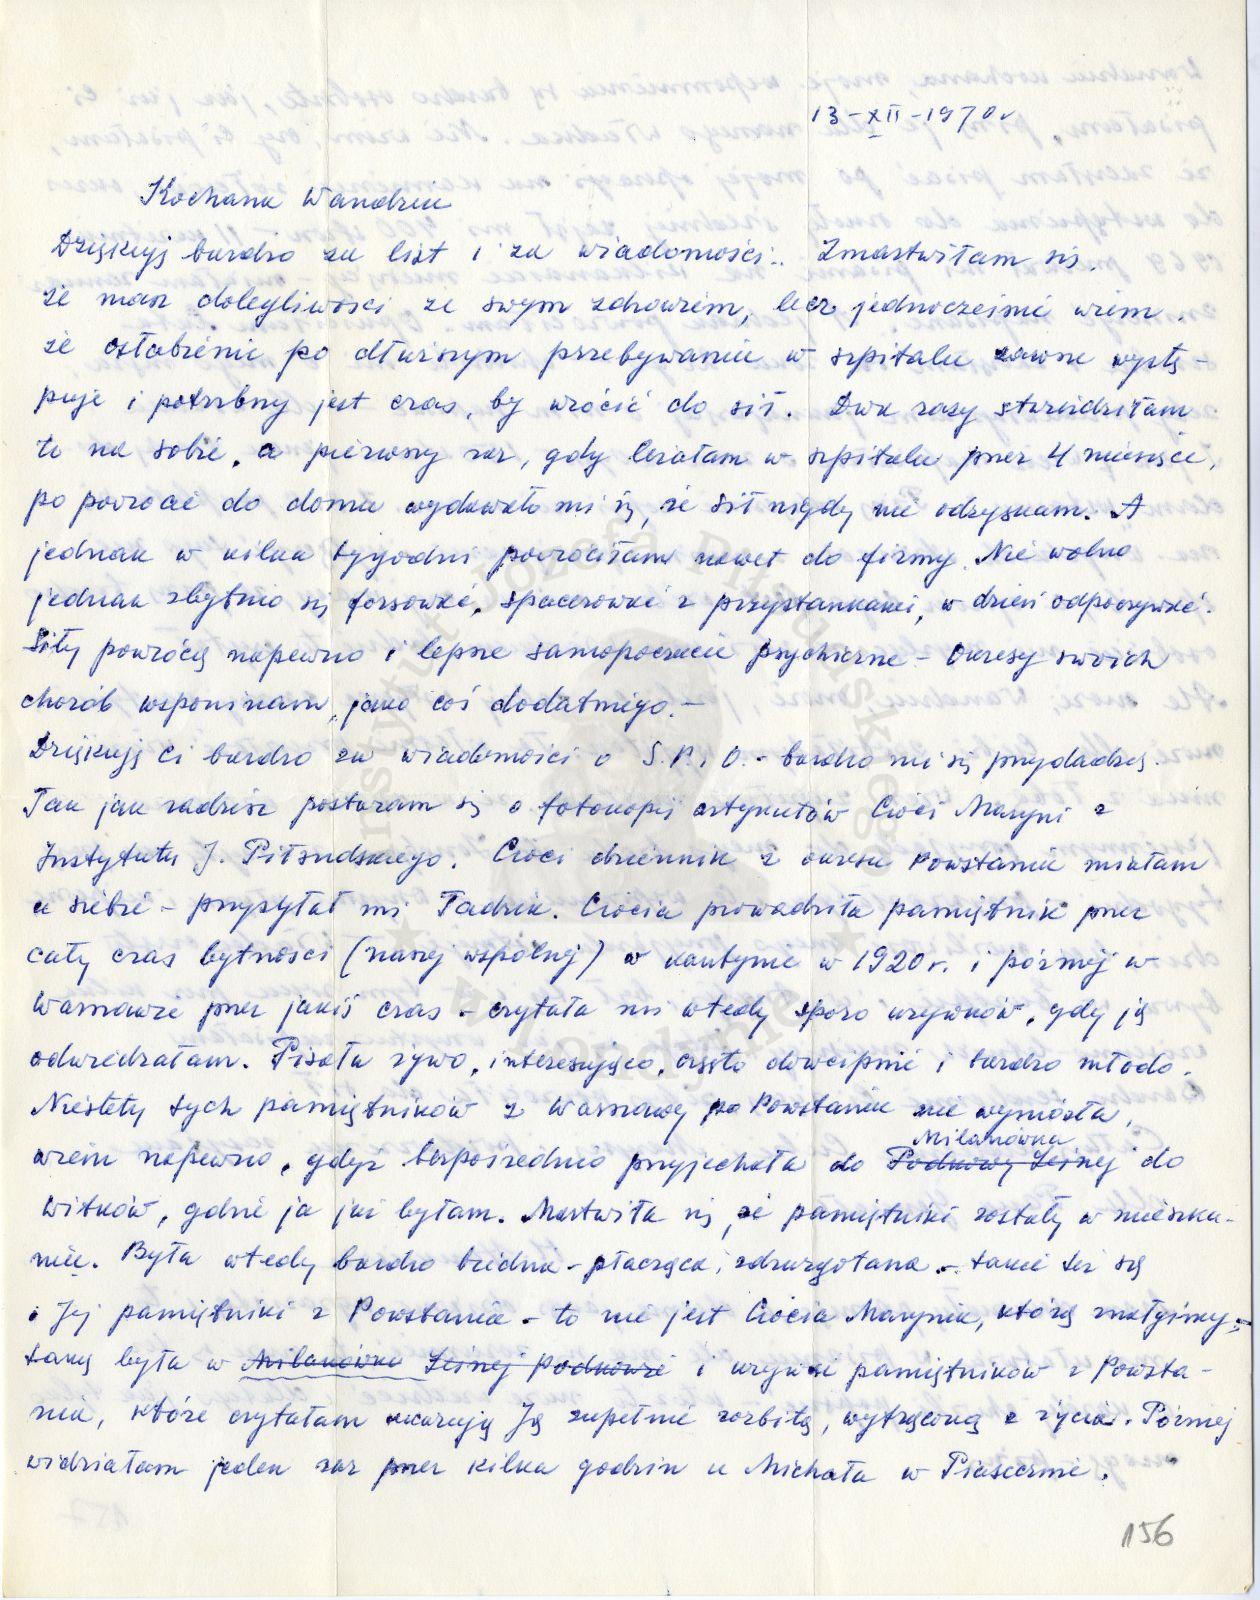 13-XII-1970r
Kochana Wandziu
Dziękuję bardzo za list i za wiadomości.. Zmartwiłam się.
że masz dolegliwości ze swym zdrowiem, lecz jednocześnie wiem.
że osłabienie po dłuższym przebywaniu w szpitalu zawsze wystę-
puje i potrzebny jest czas, by wrócić do sił. Dwa razy stwierdziłam
to na sobie, a pierwszy raz, gdy leżałam w szpitalu przez 4 miesiące,
po powrocie do domu wydawało mi się, że sił nigdy nie odzyskam. A
jednak w kilka tygodni powróciłam nawet do firmy. Nie wolno
jednak zbytnio się forsować, spacerować z przystankami, w dzień odpoczywać.
Siły powrócą napewno i lepsze samopoczucie psychiczne - Okresy swoich
chorób wspominam, jako coś dodatniego.-
Dziękuję Ci bardzo za wiadomości o S.P.i O. - bardzo mi się przydadzą.
Tak jak radzisz postaram się o fotokopię artykułów Cioci Maryni z
Instytutu J. Piłsudskiego. Cioci dziennik z okresu Powstania miałam
u siebie - przysyłał mi Tadzik. Ciocia prowadziła pamiętnik przez
cały czas bytności (naszej wspólnej) w kantynie w 1920r. i później w
Warszawie przez jakiś czas - czytała mi wtedy sporo urywków, gdy ją
odwiedzałam. Pisała żywo, interesująco, często dowcipnie i bardzo młodo.
Niestety tych pamiętników z Warszawy po Powstaniu nie wyniosła,
Milanówka
wiem napewno, gdyż bezpośrednio przyjechała do Podkowy Leśnej do
Witków, gdzie ja już byłam. Martwiła się, że pamiętniki zostały w mieszka-
niu. Była wtedy bardzo biedna - płacząca, zdruzgotana - takie też są
i Jej pamiętniki z Powstania - to nie jest Ciocia Marynia, którą znałyśmy,
taką była w Milanówku Leśnej Podkowie i urywki pamiętników z Powsta-
nia, które czytałam ukazują Ją zupełnie rozbitą, wytrąconą z życia. Później
widziałam jeden raz przez kilka godzin u Michała w Piasecznie.
156
Instytut Józefa Piłsudskiego
w Londynie